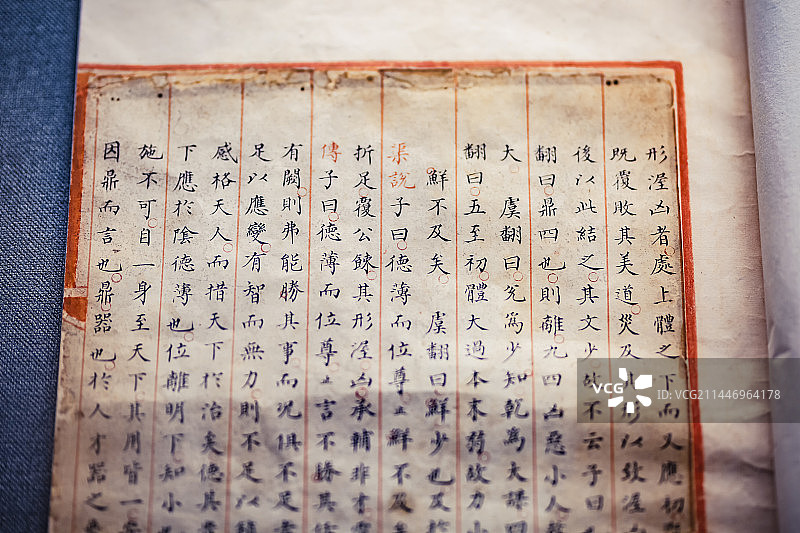 形渥凶者處上體之下而又應初
既覆敗其美道災及其形以致渥
後以此結之其文少故不云子曰
翻曰鼎四也則離九四凶惡小人
大 虞翻曰兌為少知乾為大謀曰
翻曰五至初體大過本末弱故力小
鮮不及矣 虞翻曰鮮少也及於
渠說子曰德薄而位尊止鮮不及矣
折足覆公餗其形渥凶承輔非才
傳子曰德薄而位尊止言不勝其
有闕則弗能勝其事而況俱不足
足以應變有智而無力則不足以
感格天人而措天下於治矣德其
下應於陰德薄也位離明下知小
施不可自一身至天下其用皆一
因鼎而言也鼎器也於人才器之
VCG.COM/VCG41446964178
视觉中国